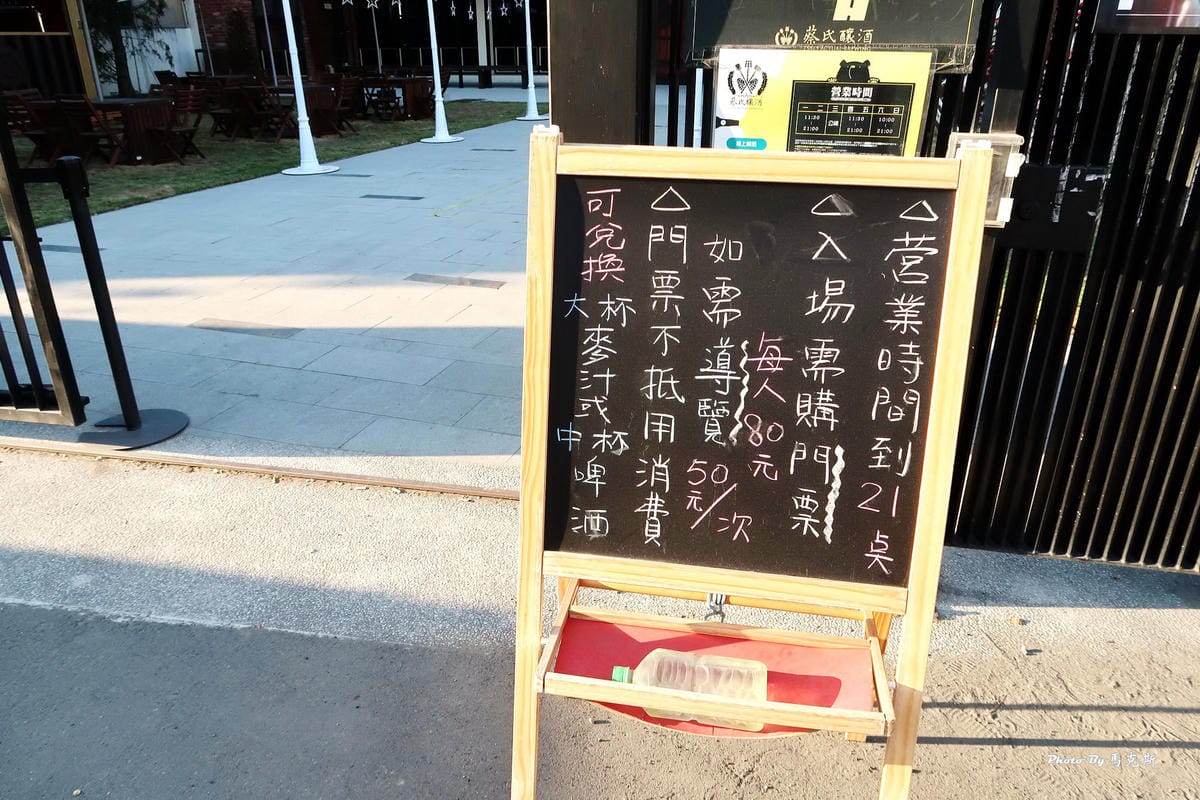 蔡氏釀酒
蔡氏釀酒
營業時間
一 二 三 四 五 六 日
11:30 - 21:00
公休
11:30 - 21:00
10:00 - 21:00
線上解酒
△營業時間到21点
△入場需購門票
每人80元
如需導覽50元/次
△門票不抵用消費
可兌換大杯麥汁或中杯啤酒
Photo By 馬克斯